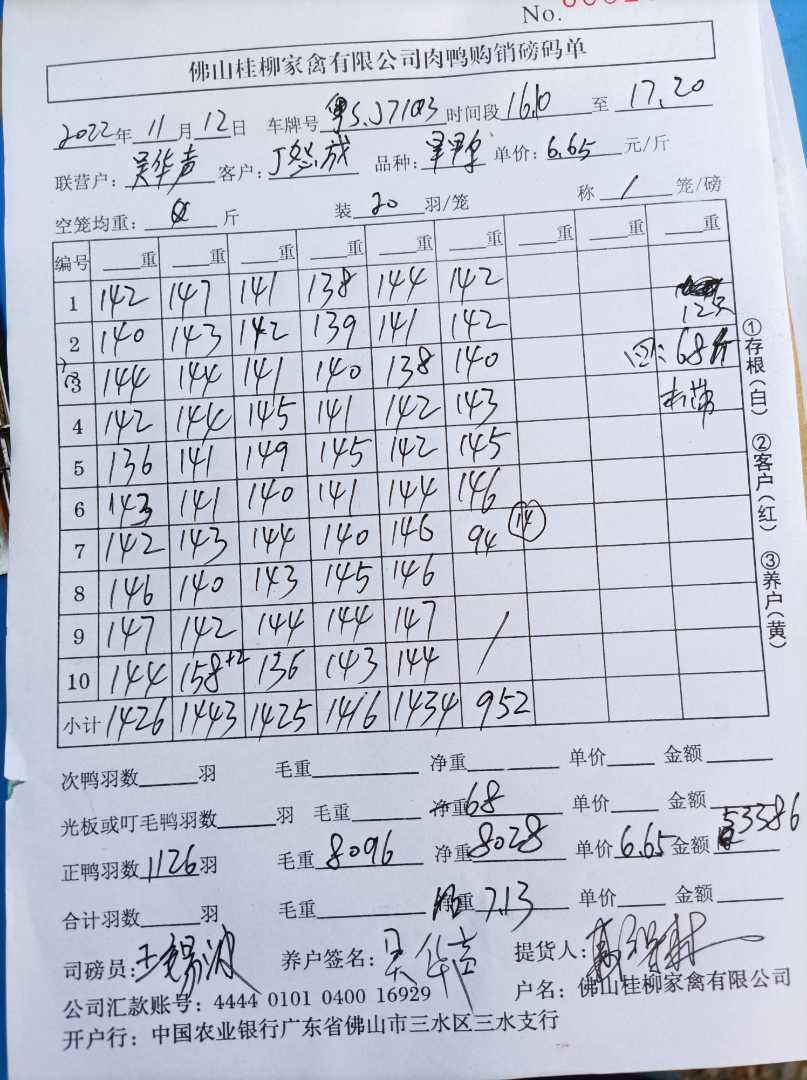 No.
佛山桂柳家禽有限公司肉鸭购销磅码单
2022年 11月 12日 车牌号 粤S.J71Q3 时间段 16.10 至 17.20
联营户：吴华声 客户： 品种： 单价：6.65 元/斤
空笼均重： 斤 装 20 羽/笼 称 1 笼/磅
编号 重 重 重 重 重 重 重 重 重
1 142 147 141 138 144 142
2 140 143 142 139 141 142 12只
3 144 144 141 140 138 140 68斤
4 142 144 145 141 142 143
5 136 141 149 145 142 145
6 143 141 140 141 144 146
7 142 143 144 140 146 94 14
8 146 140 143 145 146
9 147 142 144 144 147 /
10 144 158+2 136 143 144
小计 1426 1443 1425 1416 1434 952
次鸭羽数 羽 毛重 净重 单价 金额
光板或叮毛鸭羽数 羽 毛重 净重 68 单价 金额
正鸭羽数 1126 羽 毛重 8096 净重 8028 单价 6.65 金额 53386
合计羽数 羽 毛重 净重 7.13 单价 金额
司磅员：王锡波 养户签名：吴华声 提货人：
公司汇款账号：4444 0101 0400 16929 户名：佛山桂柳家禽有限公司
开户行：中国农业银行广东省佛山市三水区三水支行
①存根(白) ②客户(红) ③养户(黄)